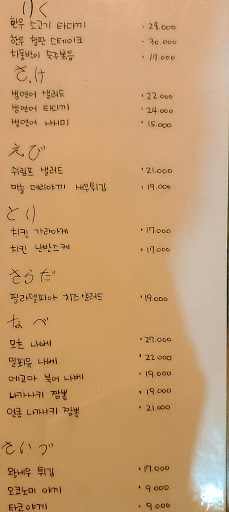 にく
한우 소고기 타다끼 28.000
한우 철판 스테이크 30.000
차돌박이 숙주볶음 17.000
さけ
생연어 샐러드 22.000
생연어 타다끼 24.000
생연어 사시미 15.000
えび
쉬림프 샐러드 21.000
마늘 데리야끼 새우튀김 19.000
とり
치킨 가라아게 17.000
치킨 난반즈케 17.000
さらだ
필라델피아 치즈샐러드 19.000
なべ
모츠 나베 27.000
밀푀유 나베 22.000
에고마 북어 나베 19.000
나가사키 짬뽕 19.000
얼큰 나가사키 짬뽕 21.000
さいつ
왕새우 튀김 17.000
오코노미 야끼 9.000
타코야끼 9.000